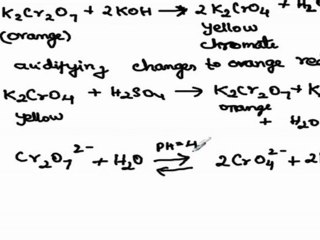 K₂Cr₂O₇ + 2KOH → 2K₂CrO₄ + H₂O
(orange) yellow
chromate
acidifying changes to orange red
K₂CrO₄ + H₂SO₄ → K₂Cr₂O₇ + K
yellow orange
+ H₂O
Cr₂O₇²⁻ + H₂O ⇌ PH=4 2CrO₄²⁻ + 2